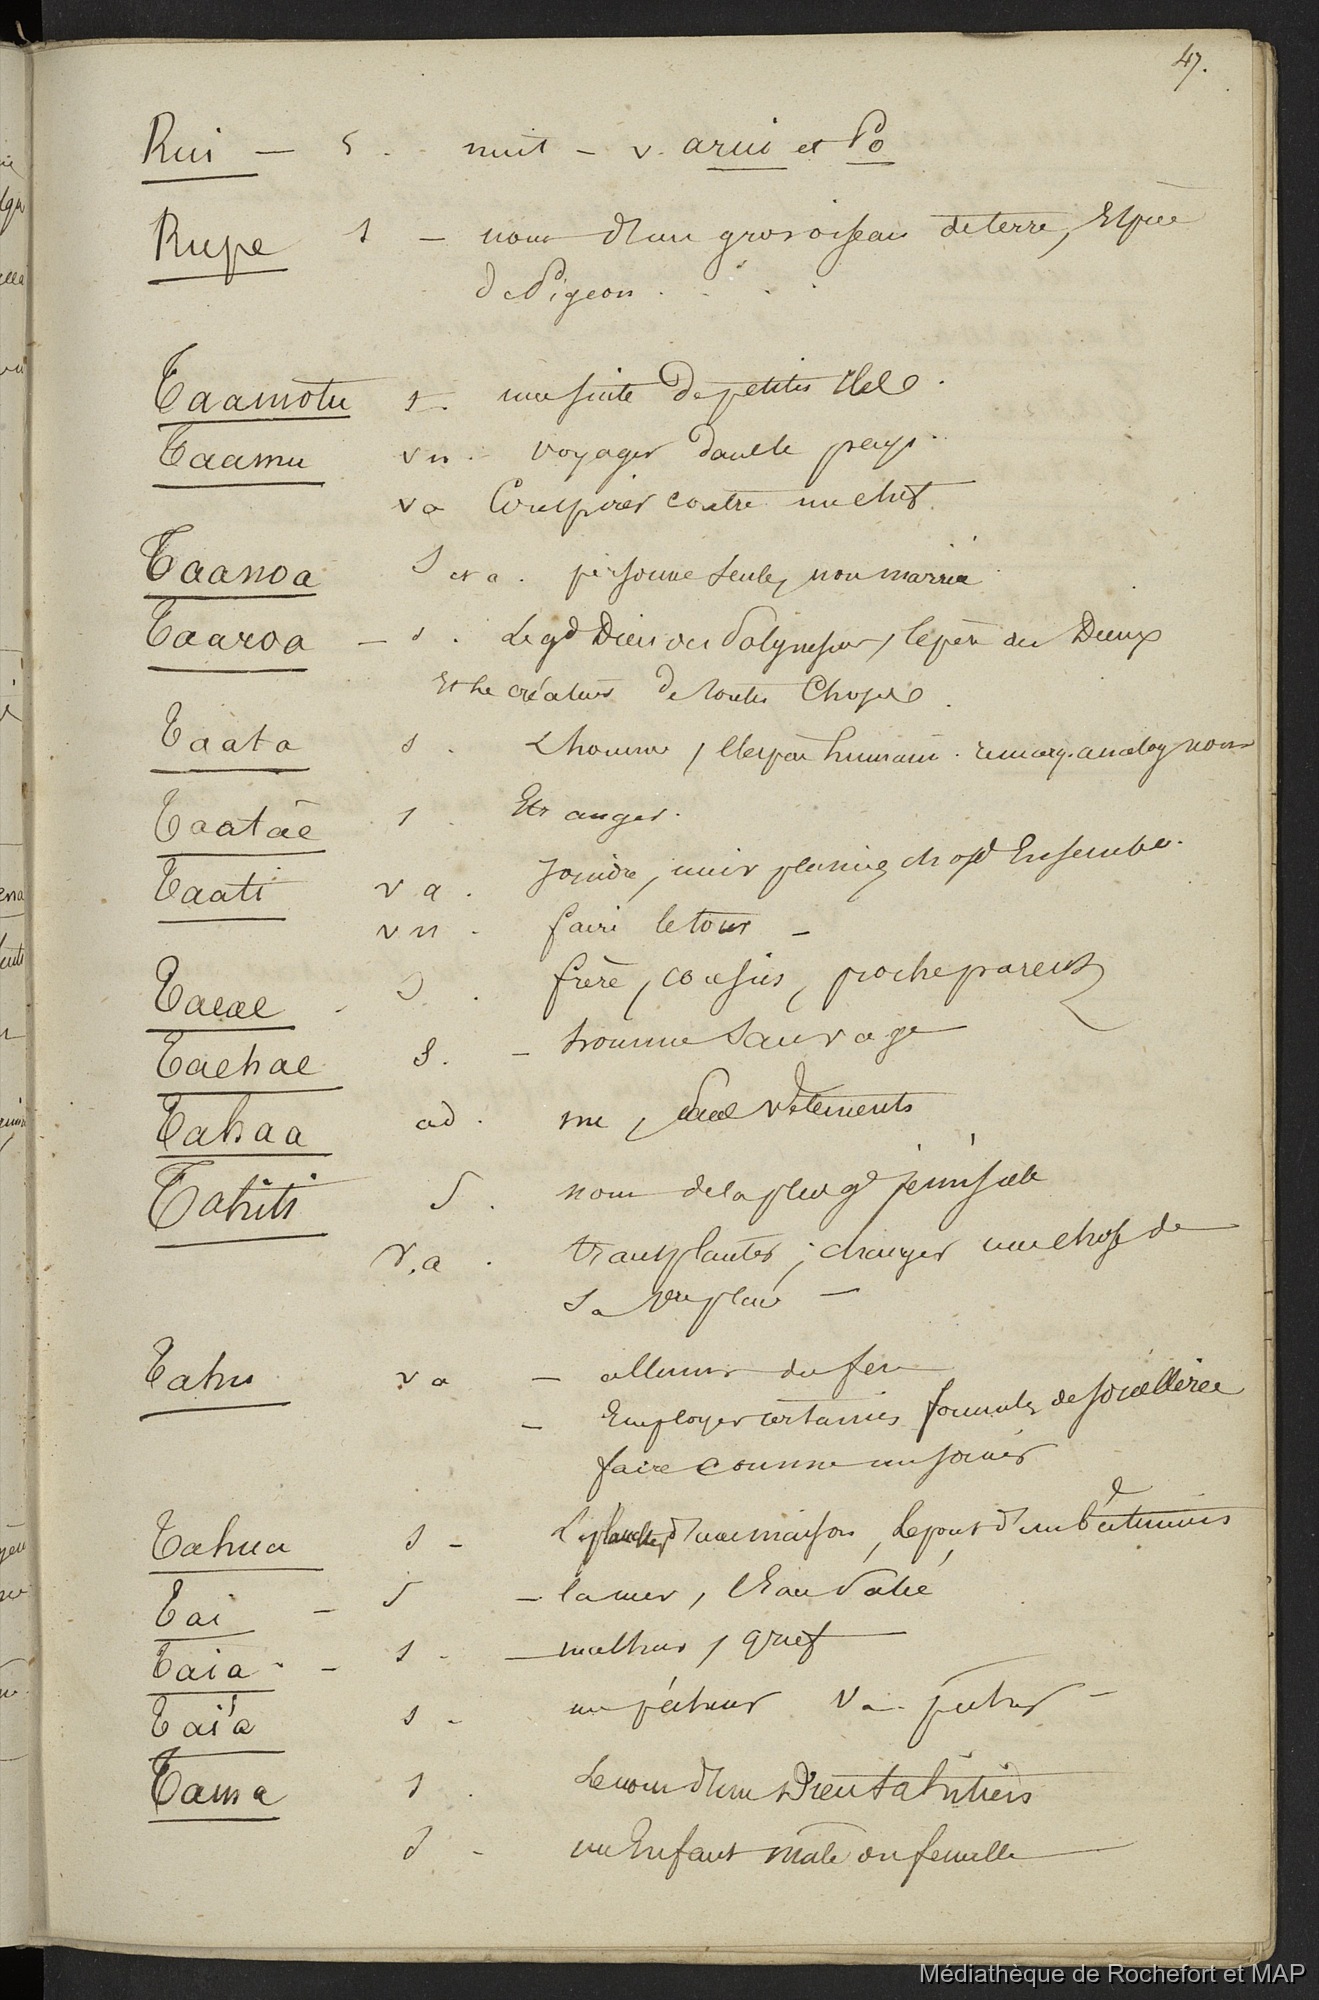 47.
Rui — s. nuit — v. arui et Po
Rupe s — nom d'un gros oiseau de terre, Espèce
de Pigeon . . . .
Taamotu s. une suite de petites iles .
Taamu vn. voyager dans le pays.
va Conspirer contre un chef.
Taanoa S et a. personne seule, non marriée
Taaroa — s. Le gd Dieu des Polynesiens, le père des Dieux
Et le créateur de toutes Choses .
Taata s. L'homme, l'espèce humaine. remarq. analog nom
Taatàe s. Etranger.
Taati va. Joindre, unir plusieurs choses Ensemble.
vn. faire le tour —
Taeae - S. frère, cousin, proche parent
Taehae s. — homme sauvage
Tahaa ad. nu, sans vêtements
Tahiti S. nom de la plus gde
v.a. transplanter ; changer une chose de
sa place —
Tahu va — allumer du feu
— Employer certaines formules de sorcellerie
faire comme un sorcier
Tahua s — Le plancher d'une maison, le pont d'un bâtiment
Tai — S — la mer, l'Eau Salée
Taia . — s . — malheur, grief
Tai'a s — un pêcheur Va. pêcher —
Tama s . Le nom d'un Dieu tahitien
s — un Enfant male ou femelle
Médiathèque de Rochefort et MAP